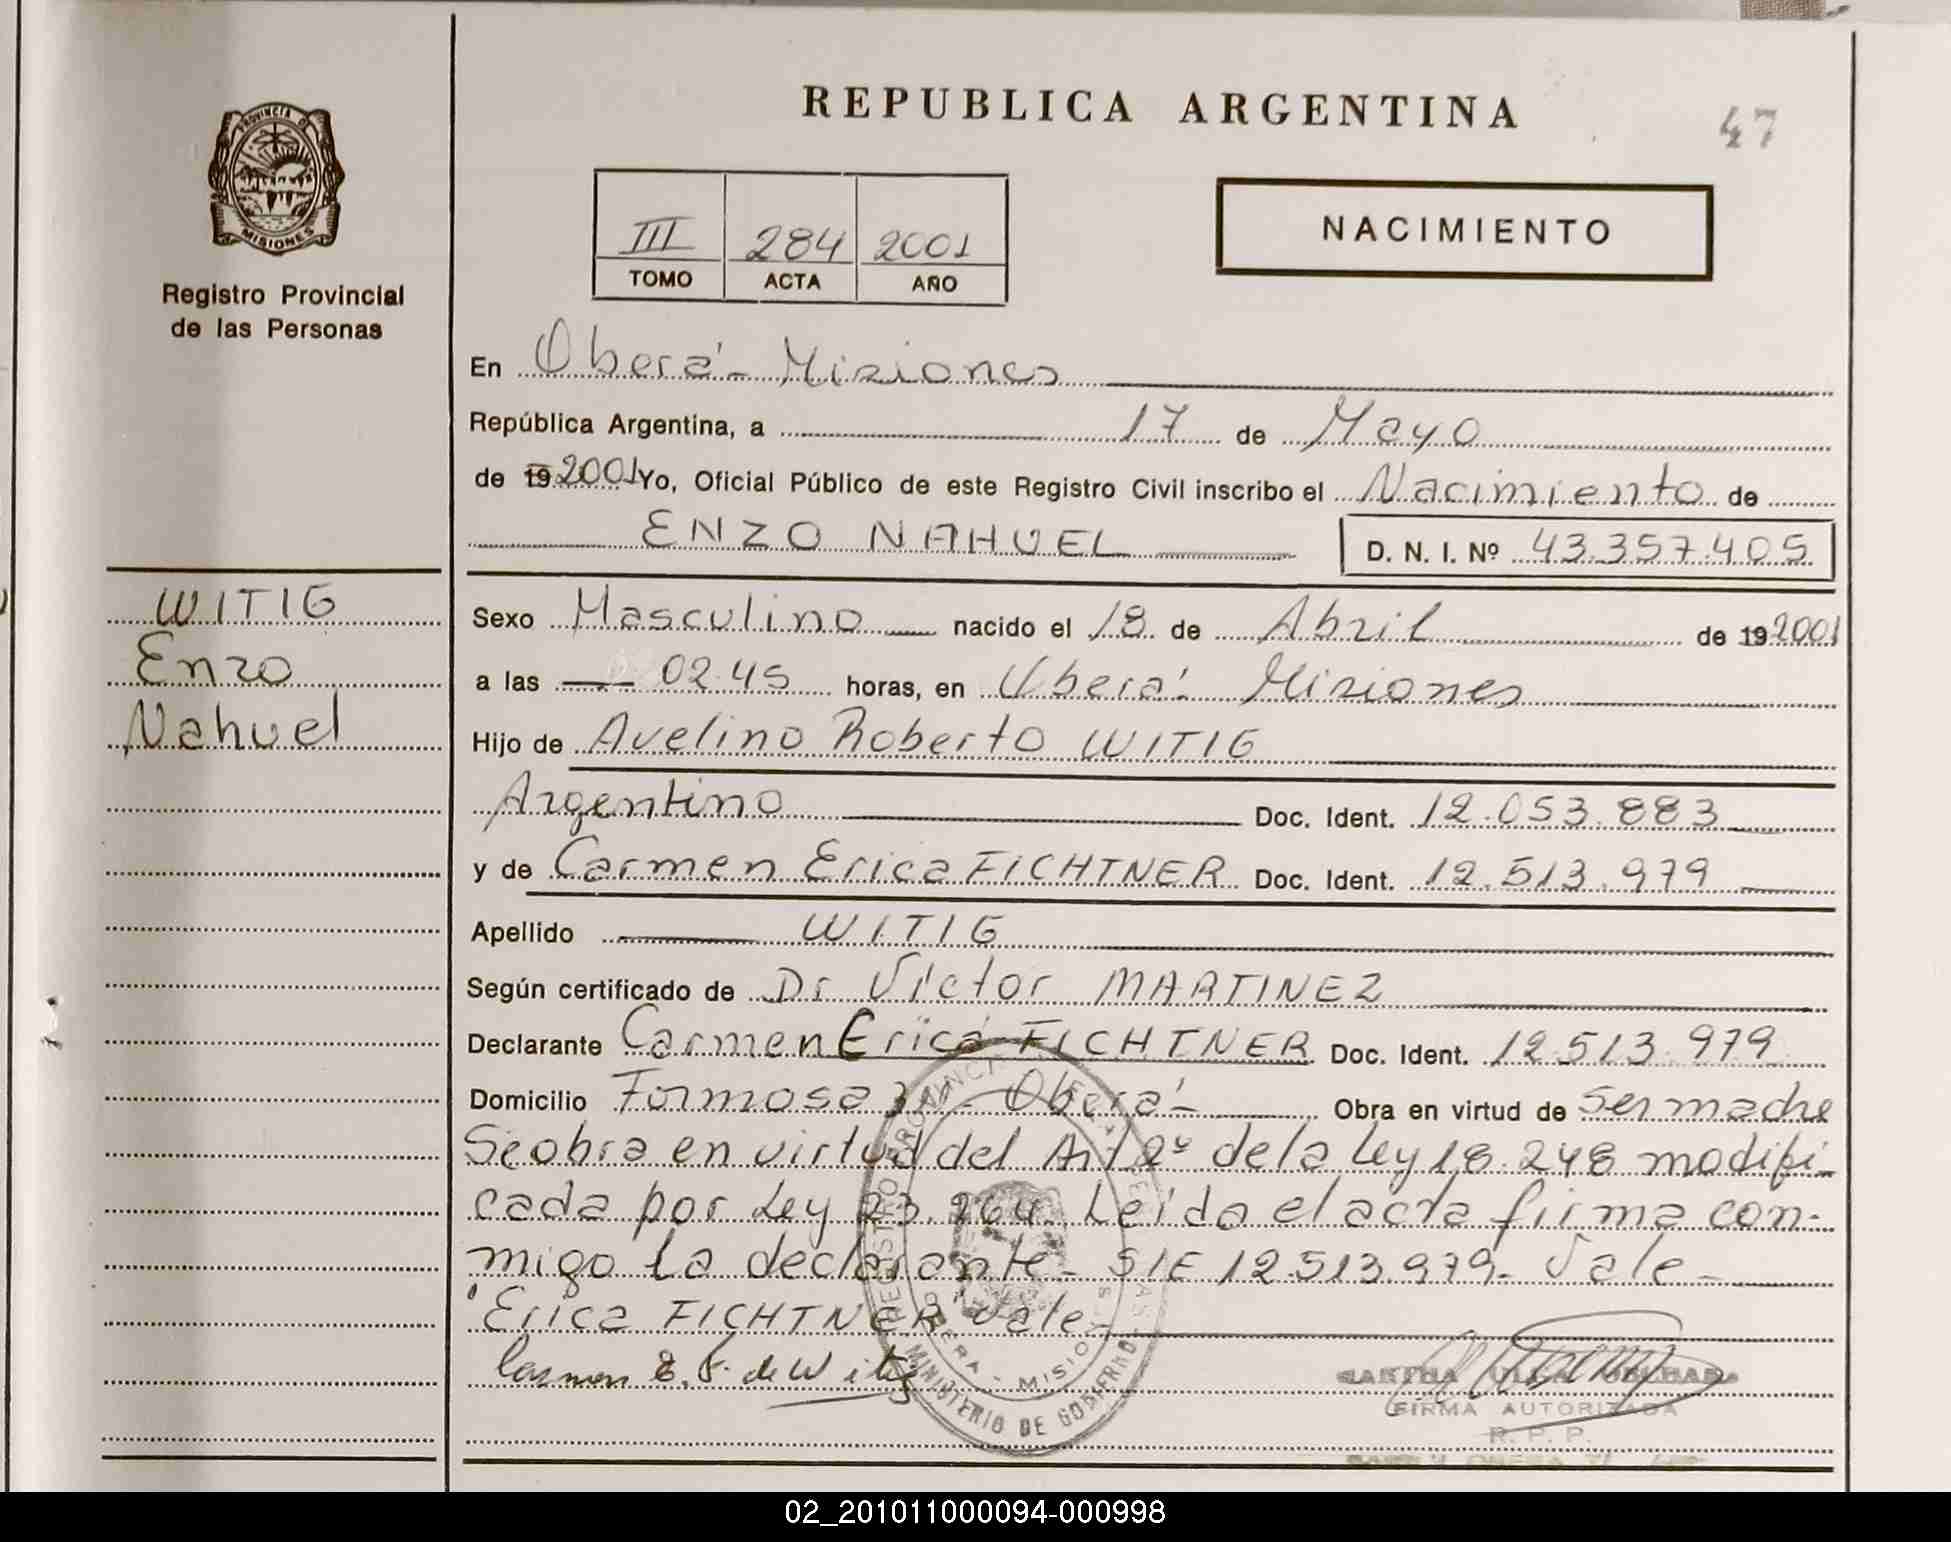 REPUBLICA ARGENTINA
47
PROVINCIA DE
MISIONES
Registro Provincial
de las Personas
III 284 2001
TOMO ACTA AÑO
NACIMIENTO
En Oberá - Misiones
República Argentina, a 17 de Mayo
de 19 2001 Yo, Oficial Público de este Registro Civil inscribo el Nacimiento de
ENZO NAHUEL D. N. I. Nº 43.357.405
WITIG
Enzo
Nahuel
Sexo Masculino nacido el 18 de Abril de 19 2001
a las 02.45 horas, en Oberá - Misiones
Hijo de Avelino Roberto WITIG
Argentino Doc. Ident. 12.053.883
y de Carmen Erica FICHTNER Doc. Ident. 12.513.979
Apellido WITIG
Según certificado de Dr Victor MARTINEZ
Declarante Carmen Erica FICHTNER Doc. Ident. 12.513.979
Domicilio Formosa - Oberá - Obra en virtud de Ser madre
Se obra en virtud del Art 2º de la Ley 18.248 modifi-
cada por Ley 23.264. Leída el acta firma con-
migo la declarante - S/E 12.513.979 - Vale -
"Erica FICHTNER" Vale -
Carmen E. F. de Witig
REGISTRO PROVINCIAL DE LAS PERSONAS
OBERA - MISIONES
MINISTERIO DE GOBIERNO
MARTHA
FIRMA AUTORIZADA
R. P. P.
02_201011000094-000998